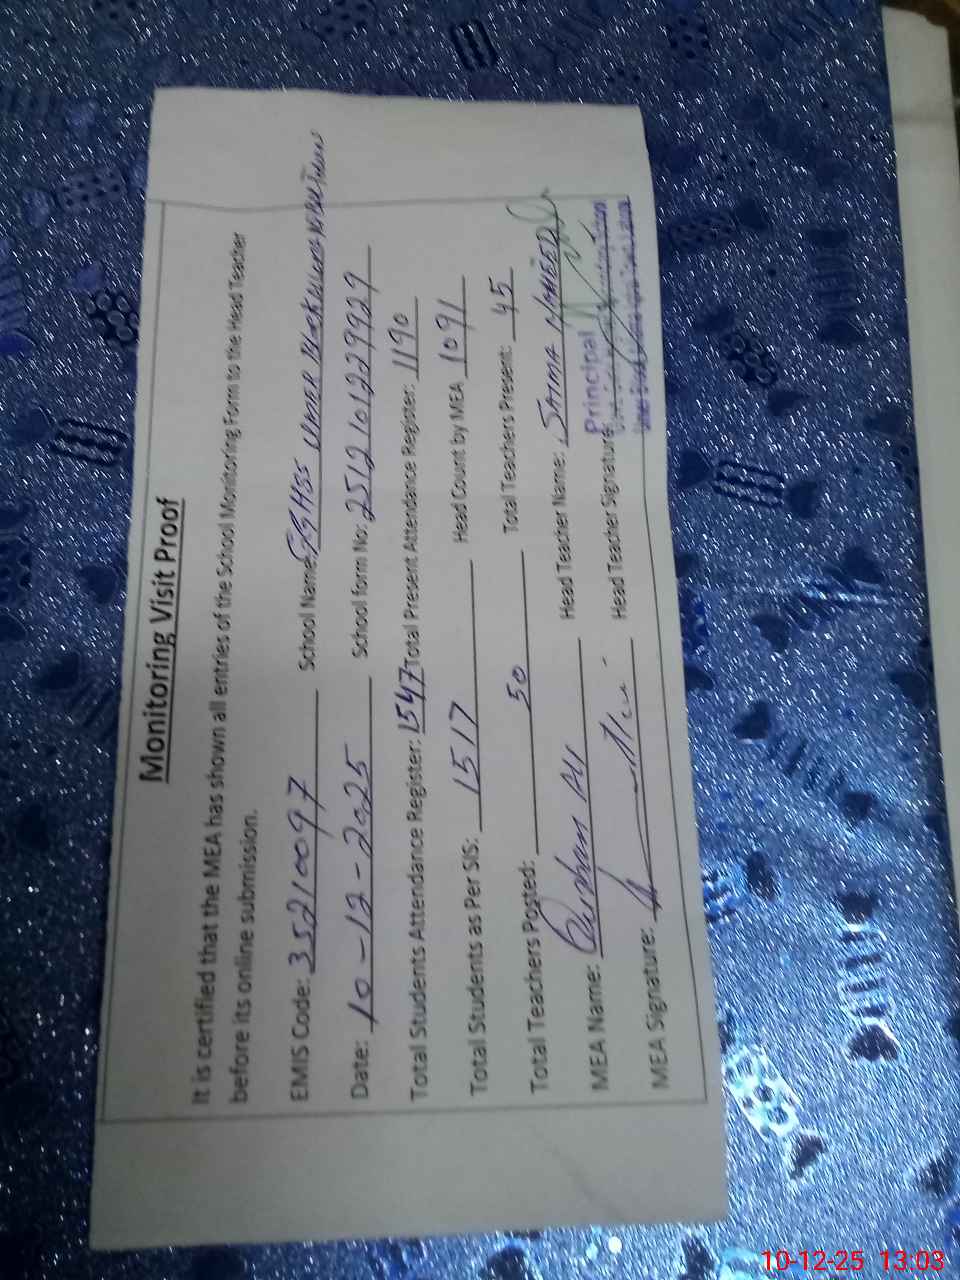 Monitoring Visit Proof
It is certified that the MEA has shown all entries of the School Monitoring Form to the Head Teacher
before its online submission.
EMIS Code: 35210097 School Name: GGHSS
Date: 10-12-2025 School form No: 2512101229929
Total Students Attendance Register: 1547 Total Present Attendance Register: 1190
Total Students as Per SIS: 1517 Head Count by MEA 1091
Total Teachers Posted: 50 Total Teachers Present: 45
MEA Name: Ali Head Teacher Name: Saima
MEA Signature: Head Teacher Signature:
Principal
10-12-25 13:03